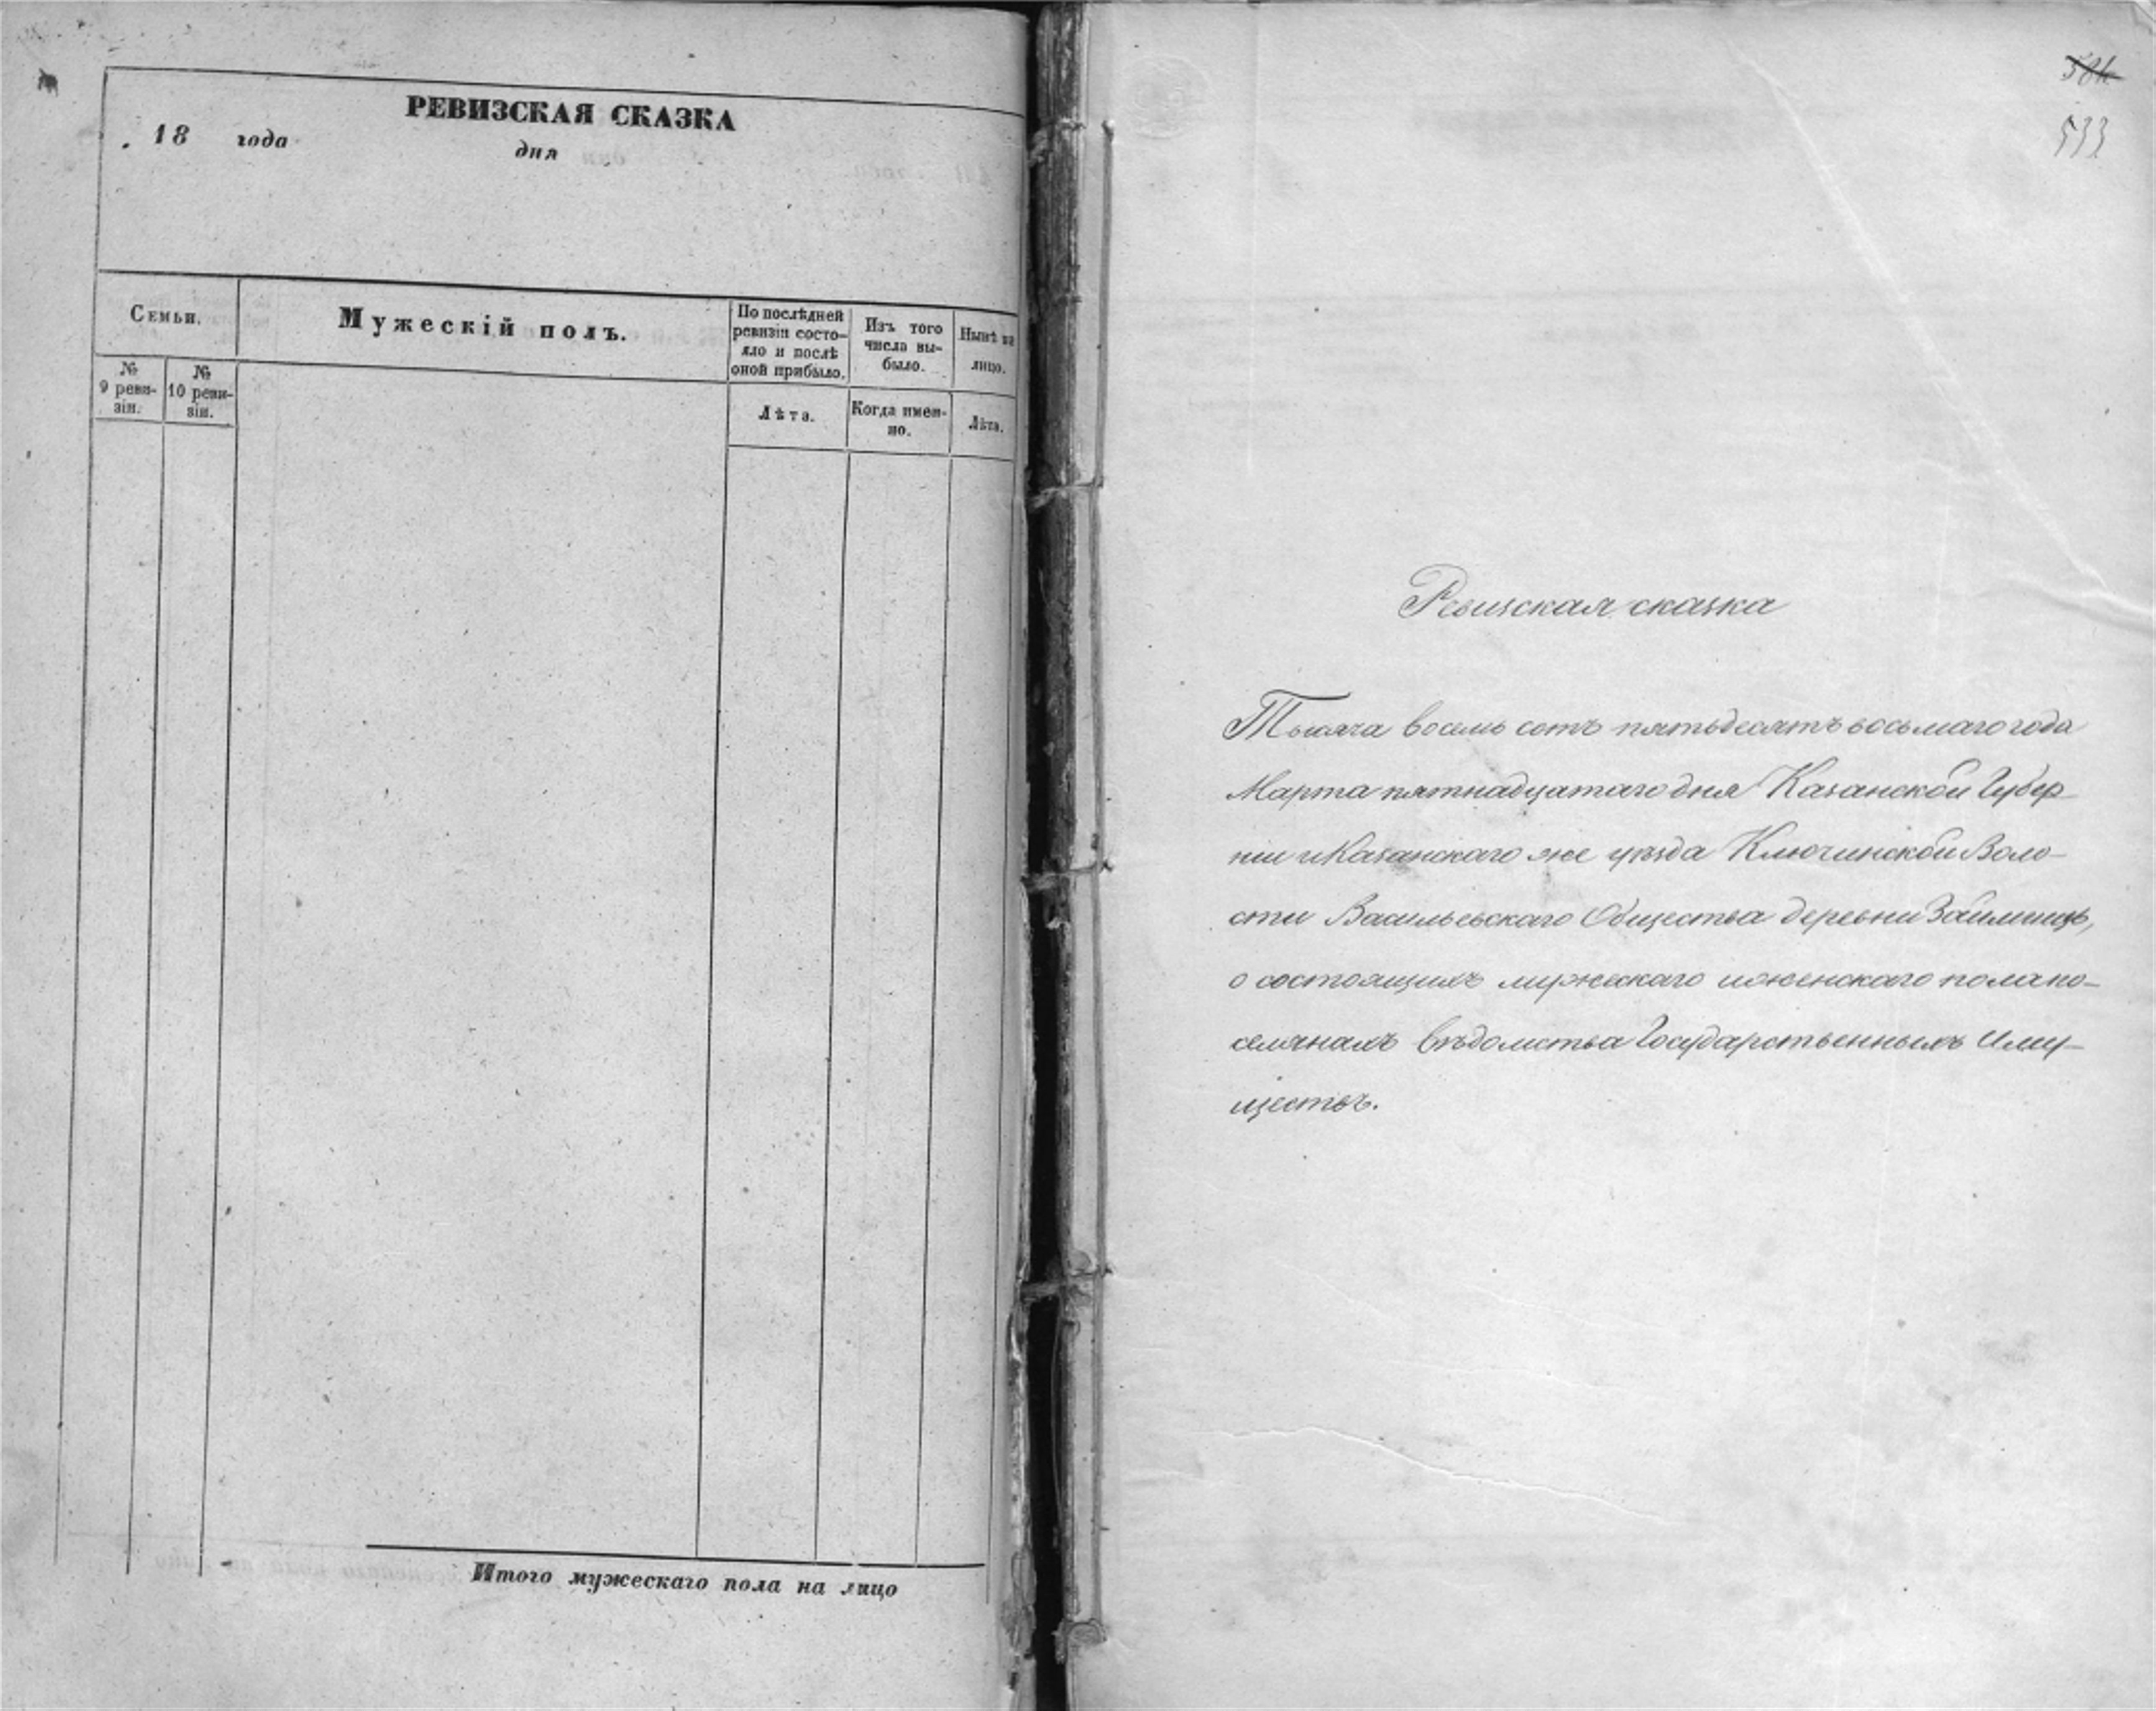 РЕВИЗСКАЯ СКАЗКА
18 года
дня
Семьи.
Мужескій полъ.
По послѣдней
ревизіи состо-
яло и послѣ
оной прибыло.
Изъ того
числа вы-
было.
Нынѣ на
лицо.
№
9 реви-
зіи.
№
10 реви-
зіи.
Лѣта.
Когда имен-
но.
Лѣта.
Итого мужескаго пола на лицо
533
Ревизская сказка
Тысяча восемь сотъ пятьдесятъ восьмаго года
Марта пятнадцатаго дня Казанской Губер-
ніи и Казанскаго же уѣзда Ключинской Воло-
сти Васильевскаго Общества деревни Займищь,
о состоящихъ мужескаго и женскаго пола по-
селянахъ вѣдомства Государственныхъ Иму-
ществъ.